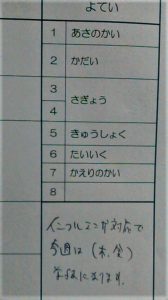 よてい
1 あさのかい
2 かだい
3
4 さぎょう
5 きゅうしょく
6 たいいく
7 かえりのかい
8
インフルエンザ対応で
今週は(木、金)
学校にあります。